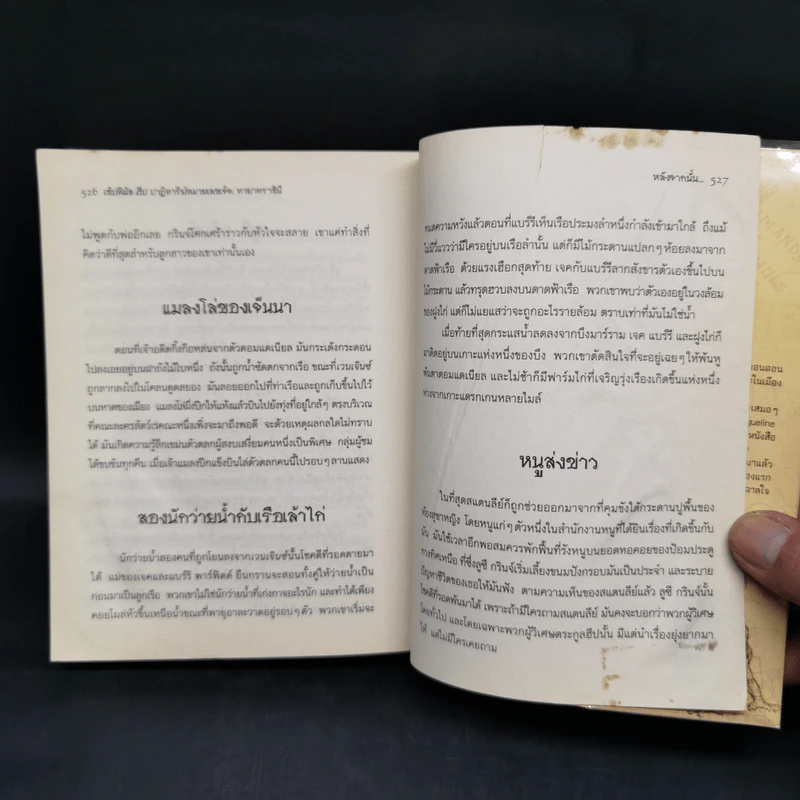 526 เซ็ปติมัส ฮีป ปาฏิหาริย์หมายเลขเจ็ด: ทายาทราชินี
ไม่พูดกับพ่ออีกเลย กรินจ์โศกเศร้าราวกับหัวใจจะสลาย เขาแค่ทำสิ่งที่
คิดว่าดีที่สุดสำหรับลูกสาวของเขาเท่านั้นเอง
แมลงโล่ของเจ็นนา
ตอนที่เจ้าอดีตกิ้งกือหล่นจากตัวดอมแดเนียล มันกระเด้งกระดอน
ไปลงเอยอยู่บนฝาถังไม้ใบหนึ่ง ถังนั้นถูกน้ำซัดตกจากเรือ ขณะที่เวนเจินซ์
ถูกลากลงไปในโคลนดูดสยอง มันลอยออกไปที่ท่าเรือและถูกเก็บขึ้นไปไว้
บนหาดของเมือง แมลงโล่ผึ่งปีกให้แห้งแล้วบินไปยังทุ่งที่อยู่ใกล้ๆ ตรงบริเวณ
ที่คณะละครสัตว์เร่คณะหนึ่งเพิ่งจะมาถึงพอดี จะด้วยเหตุผลกลใดไม่ทราบ
ได้ มันเกิดความรู้สึกเขม่นตัวตลกผู้สงบเสงี่ยมคนหนึ่งเป็นพิเศษ กลุ่มผู้ชม
ได้ขบขันทุกคืน เมื่อเจ้าแมลงปีกแข็งบินไล่ตัวตลกคนนี้ไปรอบๆ ลานแสดง
สองนักว่ายน้ำกับเรือเล้าไก่
นักว่ายน้ำสองคนที่ถูกโยนลงจากเวนเจินซ์นั้นโชคดีที่รอดตายมา
ได้ แม่ของเจคและแบร์รี พาร์ฟิตต์ ยืนกรานจะสอนทั้งคู่ให้ว่ายน้ำเป็น
ก่อนมาเป็นลูกเรือ พวกเขาไม่ใช่นักว่ายน้ำที่เก่งกาจอะไรนัก และทำได้เพียง
คอยโผล่หัวขึ้นเหนือน้ำขณะที่พายุอาละวาดอยู่รอบๆ ตัว พวกเขาเริ่มจะ
หลังจากนั้น... 527
หมดความหวังแล้วตอนที่แบร์รีเห็นเรือประมงลำหนึ่งกำลังเข้ามาใกล้ ถึงแม้
ไม่มีวี่แววว่ามีใครอยู่บนเรือลำนั้น แต่ก็มีไม้กระดานแปลกๆ ห้อยลงมาจาก
ดาดฟ้าเรือ ด้วยแรงเฮือกสุดท้าย เจคกับแบร์รีลากสังขารตัวเองขึ้นไปบน
ไม้กระดาน แล้วทรุดฮวบลงบนดาดฟ้าเรือ พวกเขาพบว่าตัวเองอยู่ในวงล้อม
ของฝูงไก่ แต่ก็ไม่แยแสว่าจะถูกอะไรรายล้อม ตราบเท่าที่มันไม่ใช่น้ำ
เมื่อท้ายที่สุดกระแสน้ำลดลงจากบึงมาร์ราม เจค แบร์รี และฝูงไก่ก็
มาติดอยู่บนเกาะแห่งหนึ่งของบึง พวกเขาตัดสินใจที่จะอยู่เฉยๆ ให้พ้นหู
พ้นตาดอมแดเนียล และไม่ช้าก็มีฟาร์มไก่ที่เจริญรุ่งเรืองเกิดขึ้นแห่งหนึ่ง
ห่างจากเกาะแดรกเกนหลายไมล์
หนูส่งข่าว
ในที่สุดสแตนลีย์ก็ถูกช่วยออกมาจากที่คุมขังใต้กระดานปูพื้นของ
ห้องสุขาหญิง โดยหนูแก่ๆ ตัวหนึ่งในสำนักงานหนูที่ได้ยินเรื่องที่เกิดขึ้นกับ
มัน มันใช้เวลาอีกพอสมควรพักฟื้นที่รังหนูบนยอดหอคอยของป้อมประตู
ทางทิศเหนือ ที่ซึ่งลูซี กรินจ์เริ่มเลี้ยงขนมปังกรอบมันเป็นประจำ และระบาย
ปัญหาชีวิตของเธอให้มันฟัง ตามความเห็นของสแตนลีย์แล้ว ลูซี กรินจ์นั้น
โชคดีที่รอดพ้นมาได้ เพราะถ้ามีใครถามสแตนลีย์ มันคงจะบอกว่าพวกผู้วิเศษ
โดยทั่วไป และโดยเฉพาะพวกผู้วิเศษตระกูลฮีปนั้น มีแต่นำเรื่องยุ่งยากมา
ให้ แต่ไม่มีใครเคยถาม
อนลอน
ในเมือง
เสมอๆ
queline
หนังสือ
มาแล้ว
องแรก
าลาใจ